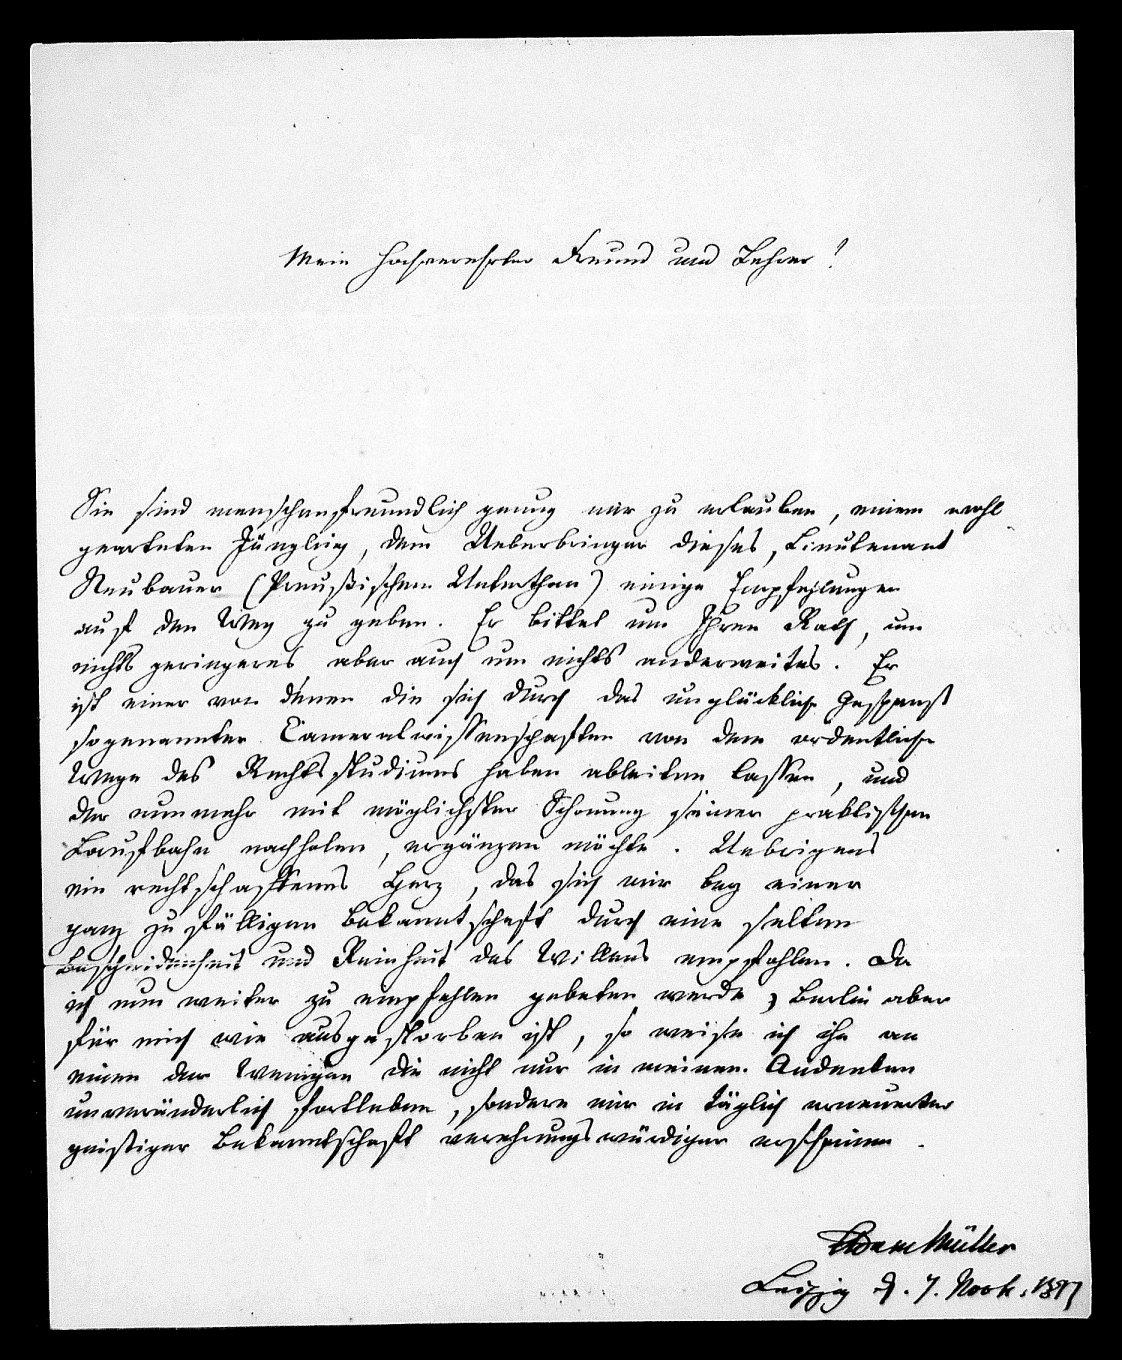 Mein hochverehrter Freund und Lehrer!
Sie sind menschenfreundlich genug mir zu erlauben, einem wohl
gearteten Jüngling, dem Ueberbringer dieses, Lieutenant
Neubauer (Preußischem Unterthan) einige Empfehlungen
auf den Weg zu geben. Er bittet um Ihren Rath, um
nichts geringeres aber auch um nichts anderweites. Er
ist einer von denen die sich durch das unglückliche Gespenst
sogenannter Cameralwissenschaften von dem ordentlichen
Wege des Rechtsstudiums haben ableiten lassen, und
der nunmehr mit möglichster Schonung seiner praktischen
Laufbahn nachholen, ergänzen möchte. Uebrigens
ein rechtschaffenes Herz, das sich mir bey einer
ganz zufälligen Bekanntschaft durch eine seltene
Bescheidenheit und Reinheit des Willens empfohlen. Da
ich nun weiter zu empfehlen gebeten werde, Berlin aber
für mich wie ausgestorben ist, so weise ich ihn an
einen der Wenigen die nicht nur in meinem Andenken
unveränderlich fortleben, sondern mir in täglich erneuerter
geistiger Bekanntschaft verehrungswürdiger erscheinen.
Adam Müller
Leipzig d. 7. Novb.